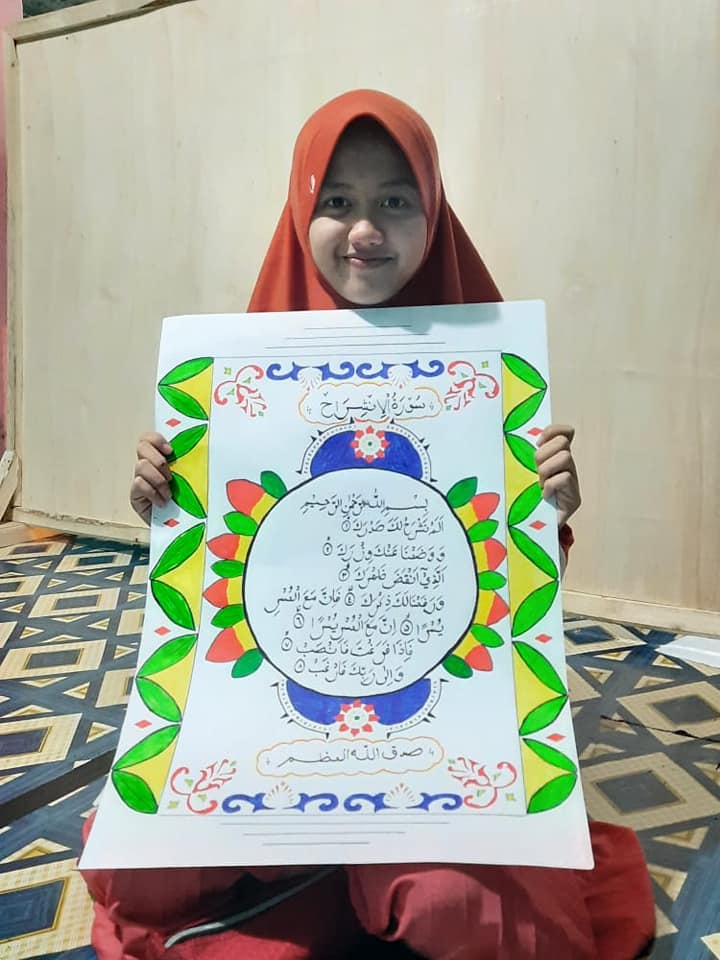 سُوْرَةُ الْاِنْشِرَاحْ
بِسْمِ اللّٰهِ الرَّحْمٰنِ الرَّحِيْمِ
اَلَمْ نَشْرَحْ لَكَ صَدْرَكَ ١
وَوَضَعْنَا عَنْكَ وِزْرَكَ ٢
الَّذِيْٓ اَنْقَضَ ظَهْرَكَ ٣
وَرَفَعْنَا لَكَ ذِكْرَكَ ٤ فَاِنَّ مَعَ الْعُسْرِ
يُسْرًا ٥ اِنَّ مَعَ الْعُسْرِ يُسْرًا ٦
فَاِذَا فَرَغْتَ فَانْصَبْ ٧
وَاِلٰى رَبِّكَ فَارْغَبْ ٨
صدق الله العظم